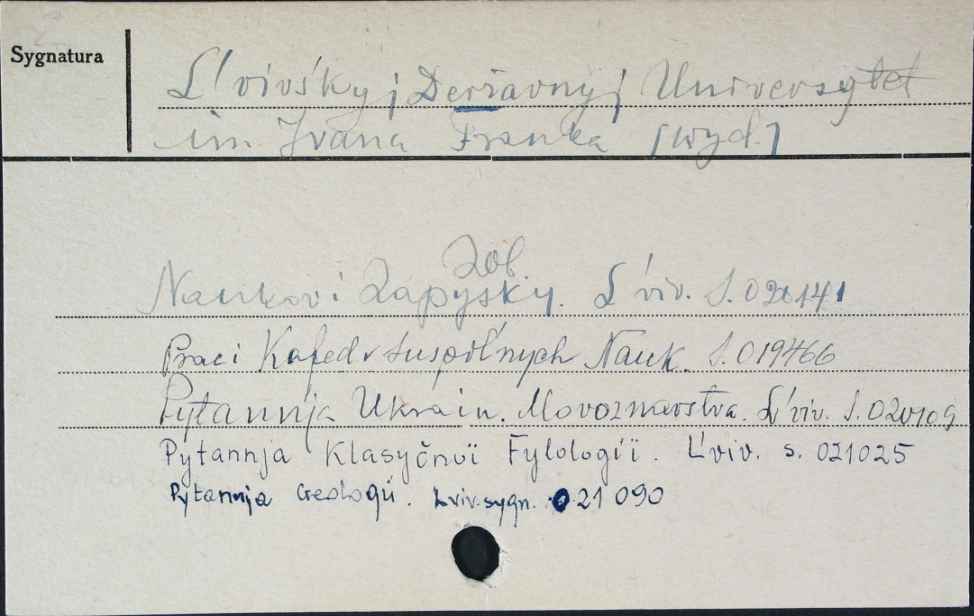 Sygnatura
L'vivśkyj Deržavnyj Universytet
im. Ivana Franka [wyd.]
Zob.
Naukovi Zapysky. L'viv. S. 020141
Praci Kafedr Suspil'nych Nauk. S. 019466
Pytannja Ukrain. Movoznavstva. L'viv. S. 020109
Pytannja Klasyčnoï Fylologiï. L'viv. s. 021025
Pytannja Geologii. Lviv. sygn. 021090